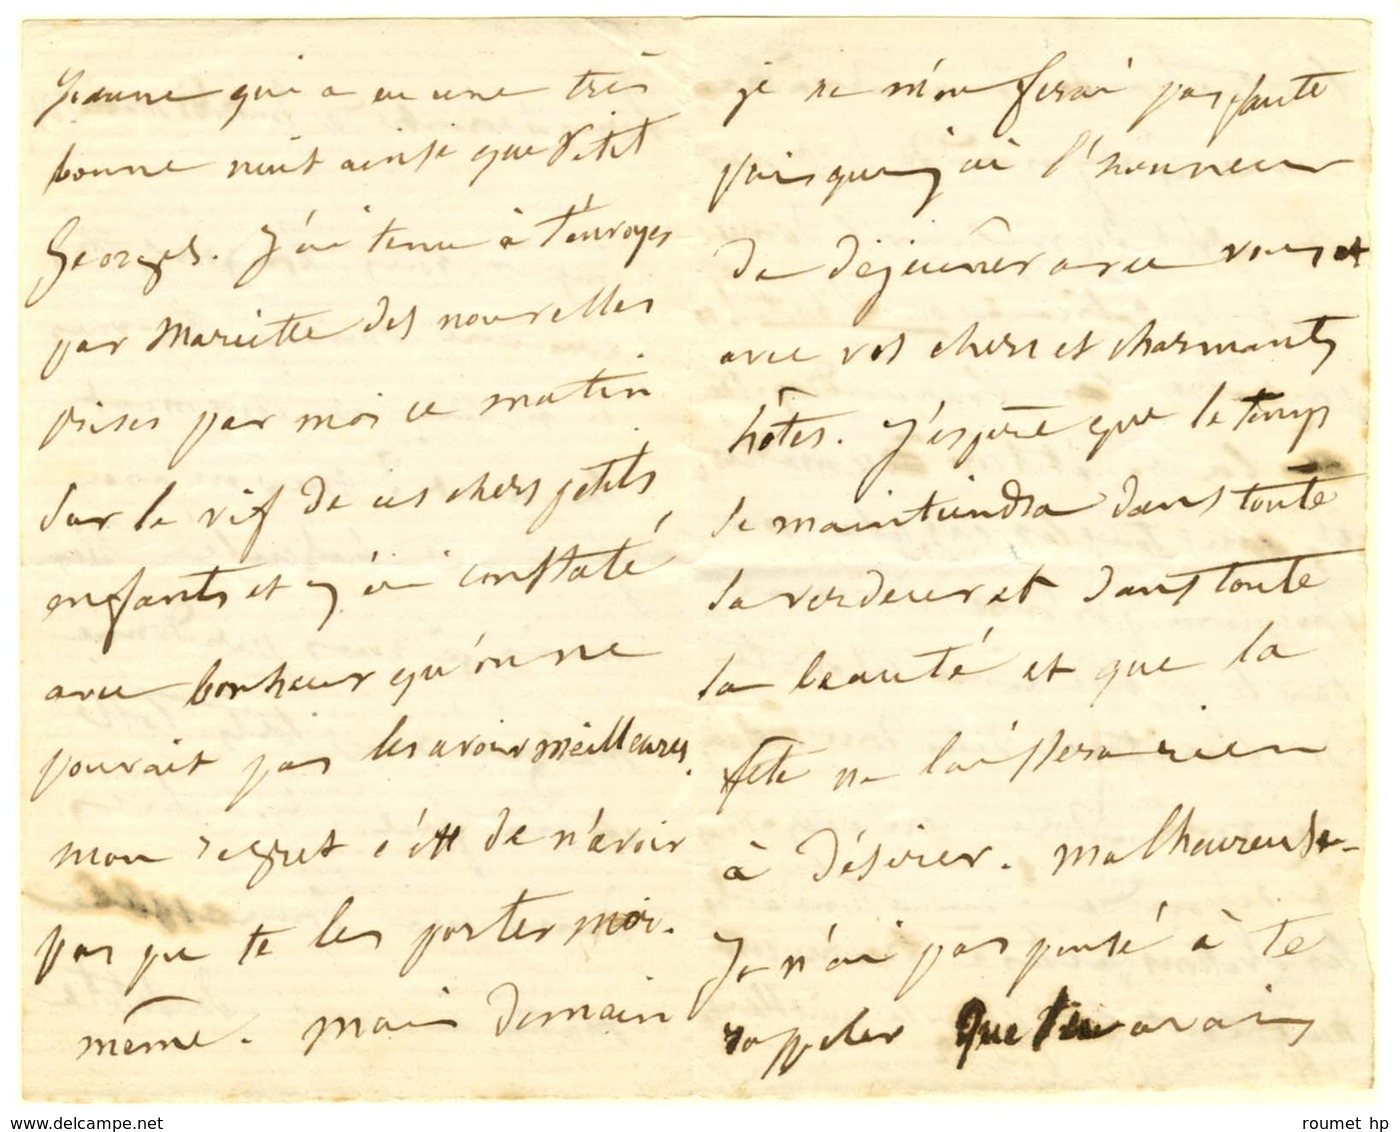 Jeanne qui a eu une très
bonne nuit ainsi que Petit
Georges. J'ai tenu à t'envoyer
par Mariette des nouvelles
prises par moi ce matin
sur le vif de ces chers petits
enfants et j'ai constaté
avec bonheur qu'on ne
pouvait pas les avoir meilleures.
mon regret c'est de n'avoir
pas pu te les porter moi-
même. mais demain
je ne m'en ferai pas faute
puisque j'ai l'honneur
de déjeûner avec vous et
avec vos chers et charmants
hôtes. J'espère que le temps
se maintiendra dans toute
sa verdeur et dans toute
sa beauté et que la
fête ne laissera rien
à désirer. Malheureuse-
Je n'ai pas pensé à te
rappeler que tu avais
roumet hp
www.delcampe.net